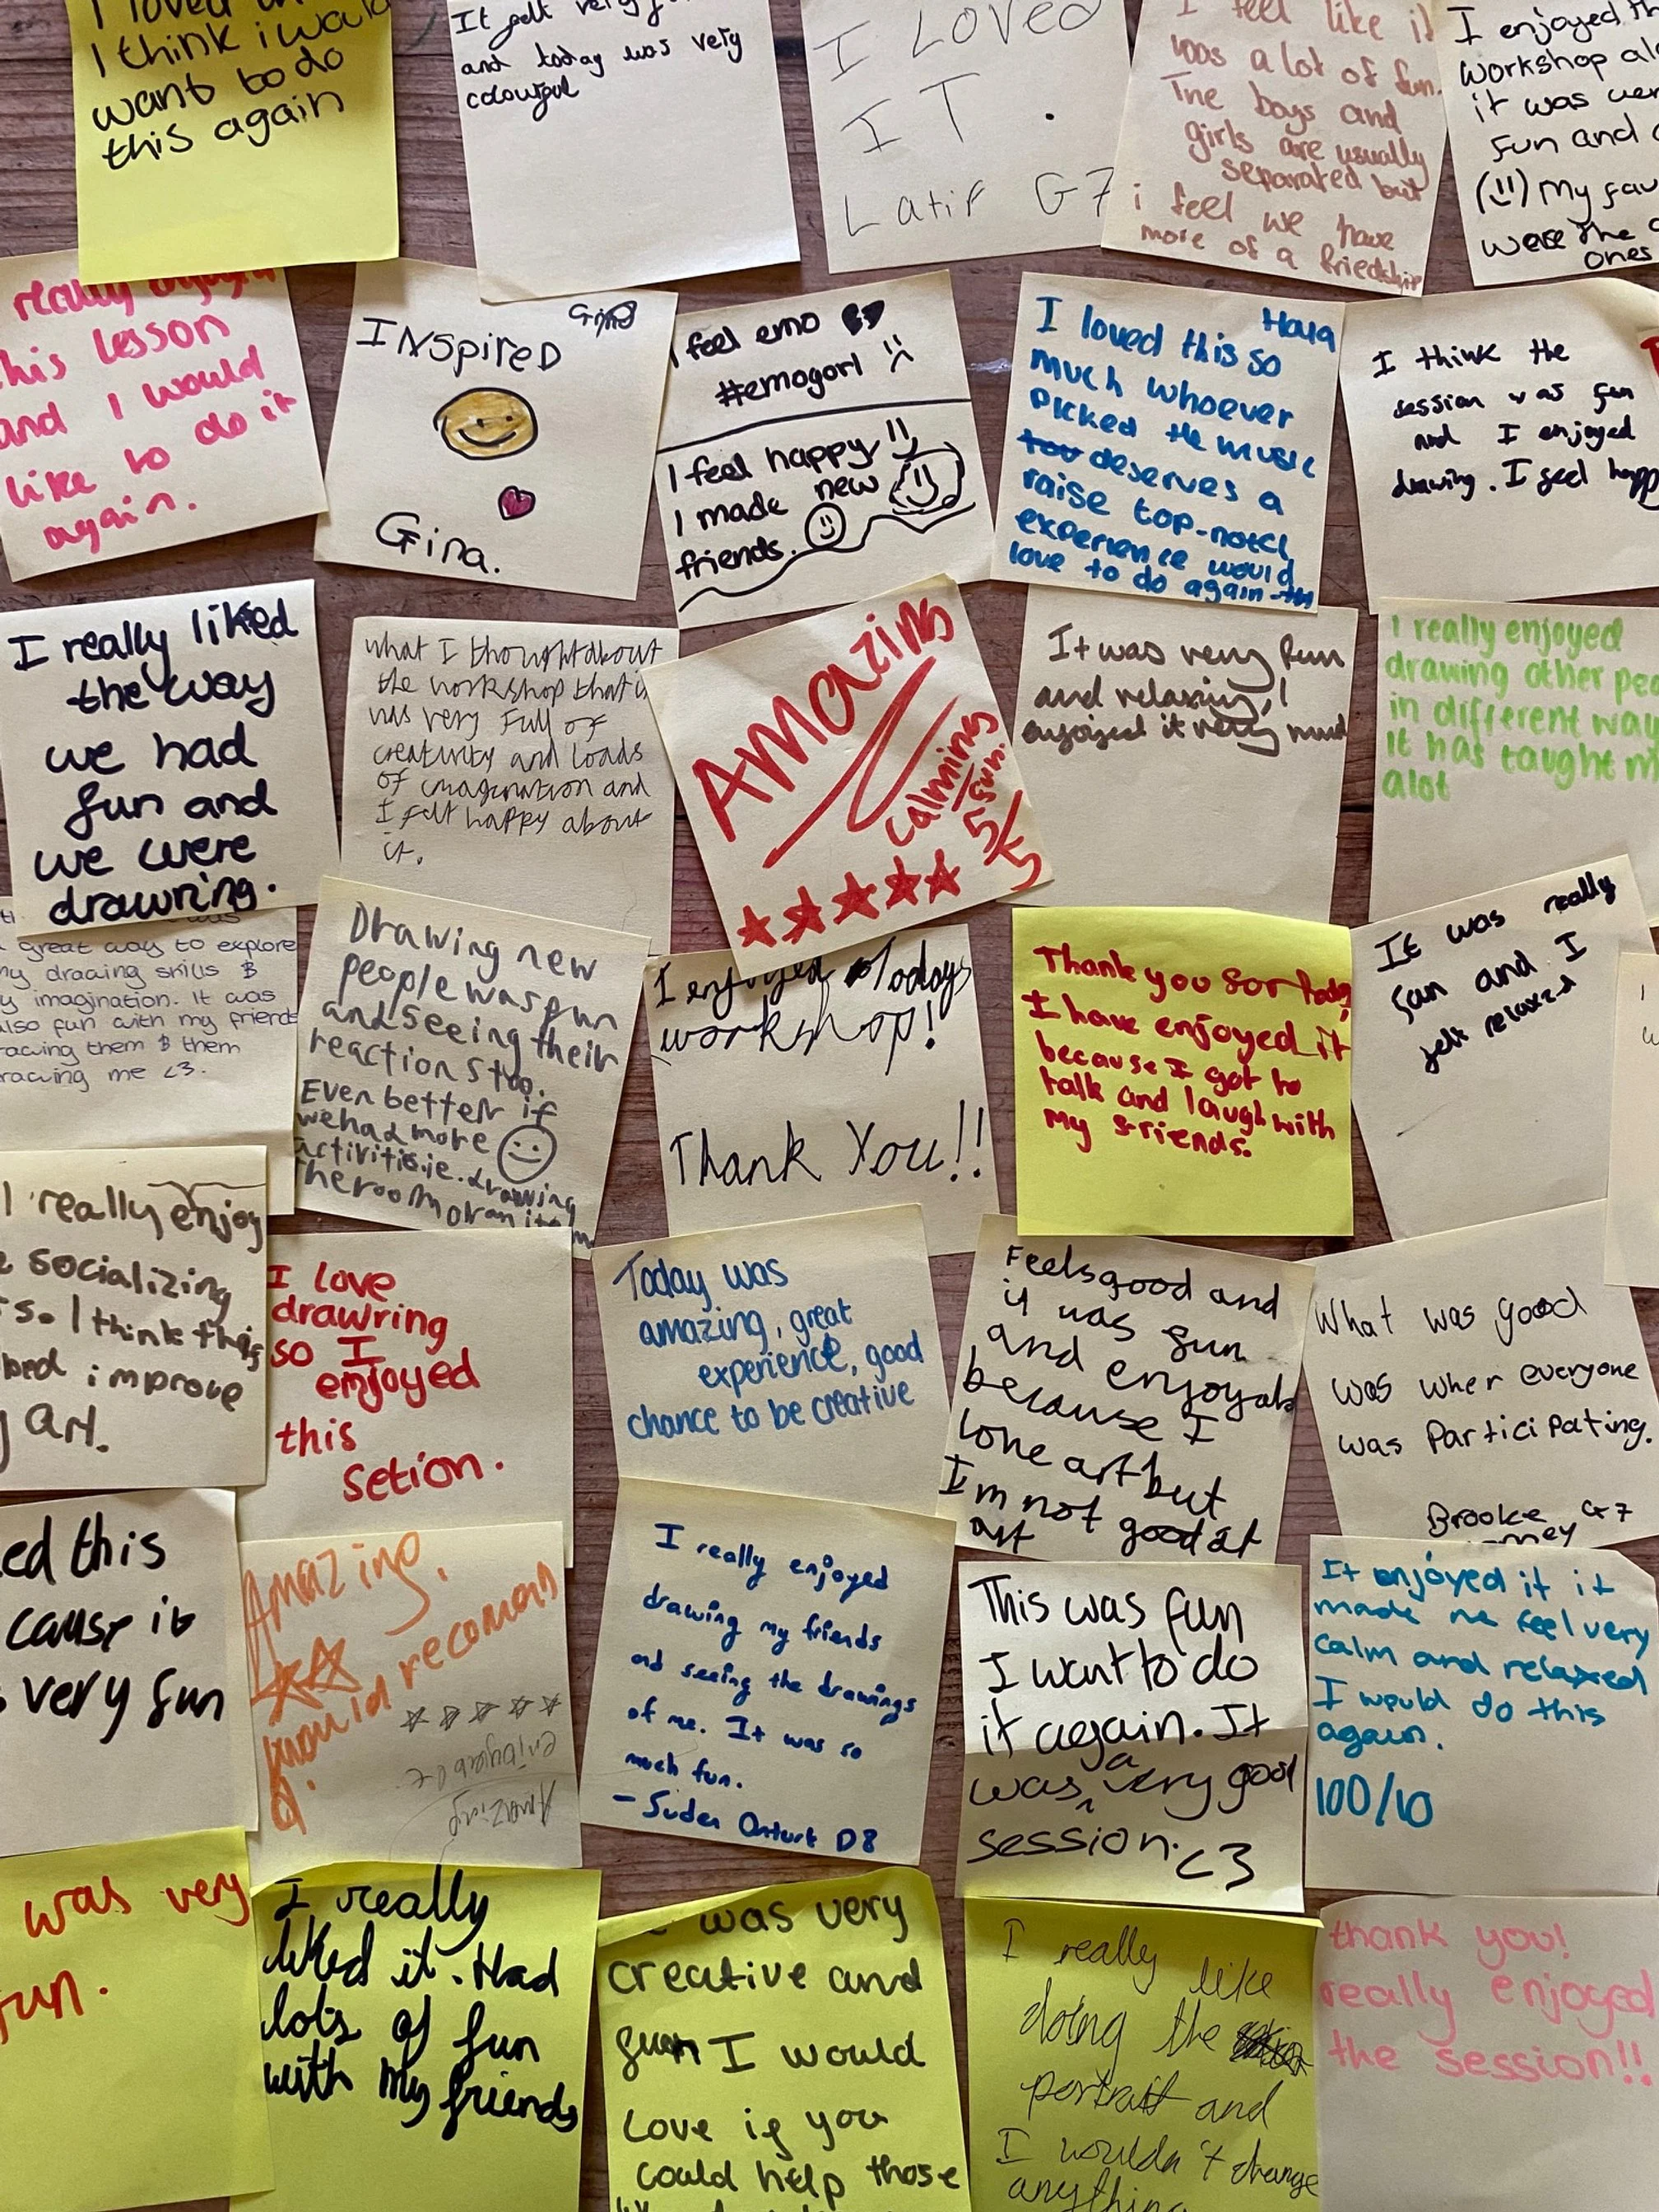 I think i would
want to do
this again
and today was very
colourful
I LOVED
IT.
Latif G7
I feel like it
was a lot of fun.
The boys and
girls are usually
separated but
i feel we have
more of a friedship
I enjoyed
workshop
it was
fun and
(!!) My
were the
ones
really
this lesson
and I would
like to do it
again.
Gina
INSpireD
Gina.
I feel emo
#emogorl
I feel happy
I made new
friends.
Hala
I loved this so
much whoever
picked the music
deserves a
raise top-notch
experience would
love to do again
I think the
session was fun
and I enjoyed
drawing. I feel
I really liked
the way
we had
fun and
we were
drawring.
what I thought about
the workshop that
was very full of
creativity and loads
of imagination and
I felt happy about
it.
Amazing
calming
fun.
5/5
It was very fun
and relaxing, I
enjoyed it very
I really enjoyed
drawing other
in different
it has taught
alot
great way to explore
my drawing skills &
my imagination. It was
also fun with my friends
drawing them & them
drawing me <3.
Drawing new
people was fun
and seeing their
reactions too.
Even better if
we had more
activities.ie.drawing
the room or an item
I enjoyed Todays
workshop!
Thank You!!
Thank you for today
I have enjoyed it
because I got to
talk and laugh with
my friends.
It was really
fun and I
felt relaxed
I really enjoy
socializing
I think this
improve
Art.
I love
drawring
so I
enjoyed
this
Setion.
Today was
amazing, great
experience, good
chance to be creative
Feels good and
it was fun
and
because I
love art but
I'm not good at
art
What was good
was when everyone
was participating.
Brooke G7
this
cause it
very fun
Amazing.
would recomend
enjoyable
Amazing
I really enjoyed
drawing my friends
and seeing the drawings
of me. It was so
much fun.
This was fun
I want to do
it again. It
was a very good
session. <3
It enjoyed it it
made me feel very
calm and relaxed
I would do this
again.
100/10
was very
fun.
I really
liked it. Had
lots of fun
with my friends
was very
creative and
fun I would
Love if you
could help those
I really like
doing the
portrait and
I wouldn't change
anything
thank you!
really enjoyed
the session!!